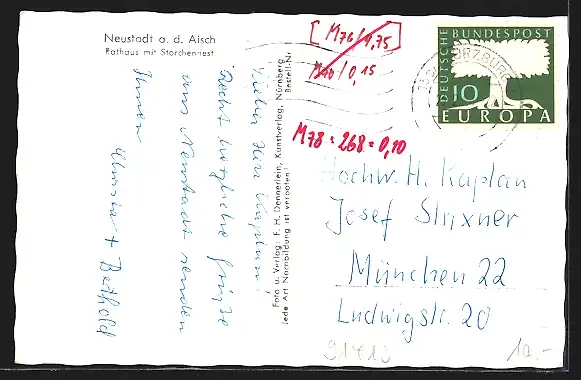 Neustadt a. d. Aisch
Rathaus mit Storchennest
Lieber Herr Kaplan!
Recht herzliche Grüße
aus Neustadt senden
Ihnen
+ Berthold
Foto u. Verlag: F. H. Dennerlein, Kunstverlag, Nürnberg
Jede Art Nachbildung ist verboten!
Bestell-Nr
[M76/9,75]
M40/0,15
M78 = 268 = 0,10
DEUTSCHE BUNDESPOST
10
EUROPA
Hochw. H. Kaplan
Josef Strixner
München 22
Ludwigstr. 20
91413
10.-